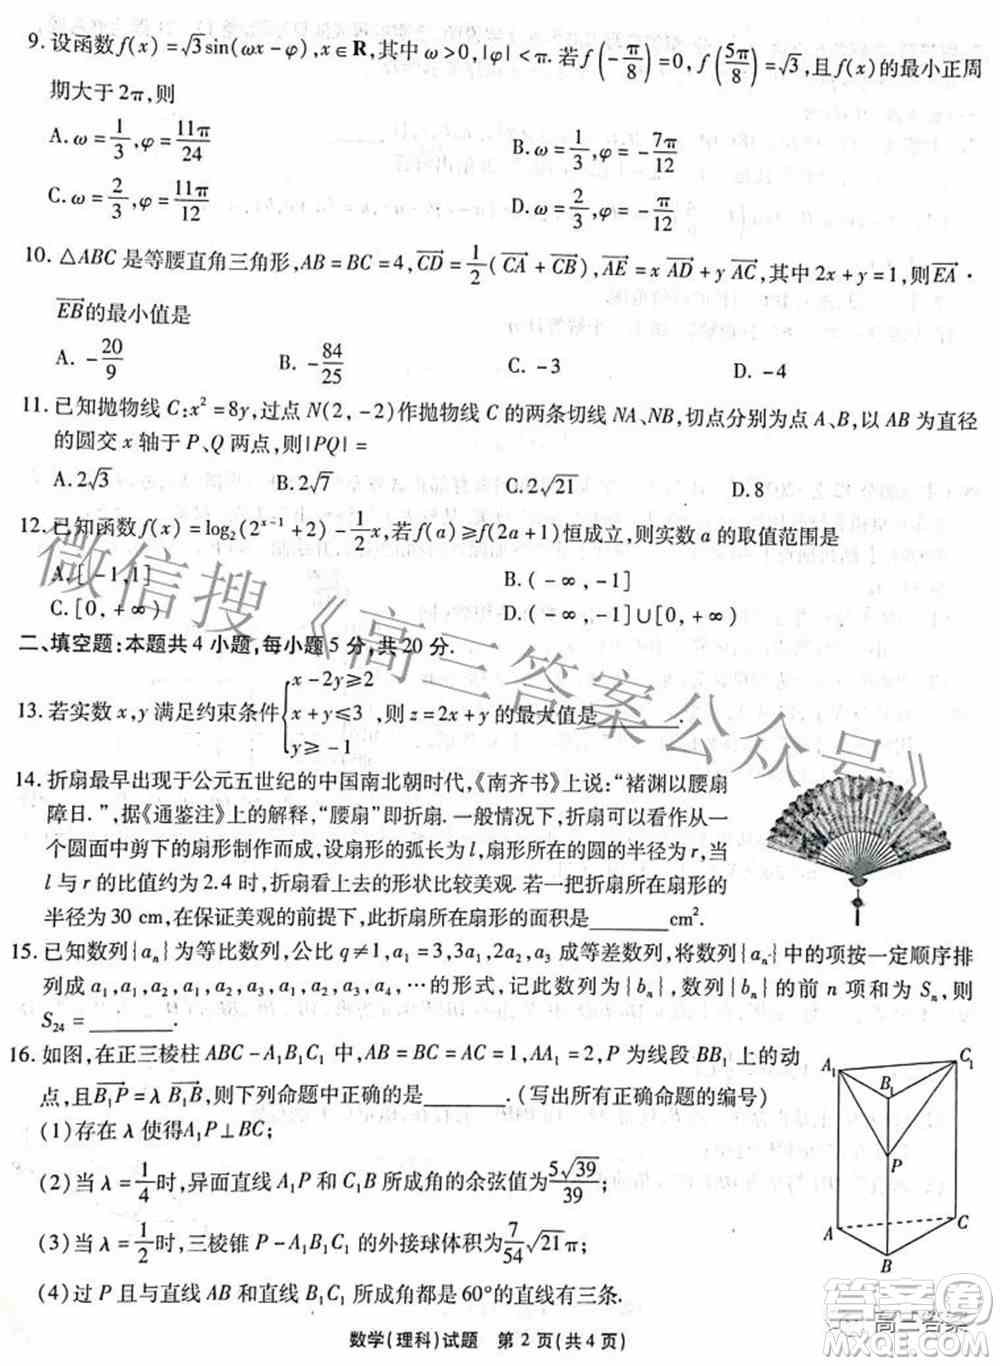 9. 设函数f(x)=√3sin(ωx-φ),x∈R,其中ω>0,|φ|<π.若f(-π/8)=0,f(5π/8)=√3,且f(x)的最小正周
期大于2π,则
A. ω=1/3,φ=11π/24 B. ω=1/3,φ=-7π/12
C. ω=2/3,φ=11π/12 D. ω=2/3,φ=-π/12
10. △ABC是等腰直角三角形,AB=BC=4,CD=1/2(CA+CB),AE=x AD+y AC,其中2x+y=1,则EA·
EB的最小值是
A. -20/9 B. -84/25 C. -3 D. -4
11. 已知抛物线C:x²=8y,过点N(2,-2)作抛物线C的两条切线NA、NB,切点分别为点A、B,以AB为直径
的圆交x轴于P、Q两点,则|PQ|=
A. 2√3 B. 2√7 C. 2√21 D. 8
12. 已知函数f(x)=log₂(2^(x-1)+2)-1/2x,若f(a)≥f(2a+1)恒成立,则实数a的取值范围是
A. [-1,1] B. (-∞,-1]
C. [0,+∞) D. (-∞,-1]∪[0,+∞)
二、填空题:本题共4小题,每小题5分,共20分.
13. 若实数x,y满足约束条件{x-2y≥2 x+y≤3 y≥-1,则z=2x+y的最大值是________.
14. 折扇最早出现于公元五世纪的中国南北朝时代,《南齐书》上说:“褚渊以腰扇
障日.”,据《通鉴注》上的解释,“腰扇”即折扇.一般情况下,折扇可以看作从一
个圆面中剪下的扇形制作而成,设扇形的弧长为l,扇形所在的圆的半径为r,当
l与r的比值约为2.4时,折扇看上去的形状比较美观.若一把折扇所在扇形的
半径为30 cm,在保证美观的前提下,此折扇所在扇形的面积是________cm².
15. 已知数列{aₙ}为等比数列,公比q≠1,a₁=3,3a₁,2a₂,a₃成等差数列,将数列{aₙ}中的项按一定顺序排
列成a₁,a₁,a₂,a₁,a₂,a₃,a₁,a₂,a₃,a₄,…的形式,记此数列为{bₙ},数列{bₙ}的前n项和为Sₙ,则
S₂₄=________.
16. 如图,在正三棱柱ABC-A₁B₁C₁中,AB=BC=AC=1,AA₁=2,P为线段BB₁上的动
点,且B₁P=λB₁B,则下列命题中正确的是________.(写出所有正确命题的编号)
(1)存在λ使得A₁P⊥BC;
(2)当λ=1/4时,异面直线A₁P和C₁B所成角的余弦值为5√39/39;
(3)当λ=1/2时,三棱锥P-A₁B₁C₁的外接球体积为7/54√21π;
(4)过P且与直线AB和直线B₁C₁所成角都是60°的直线有三条.
A₁
C₁
B₁
P
A
C
B
数学(理科)试题 第2页(共4页)
微信搜《高三答案公众号》
答案圈
高三答案